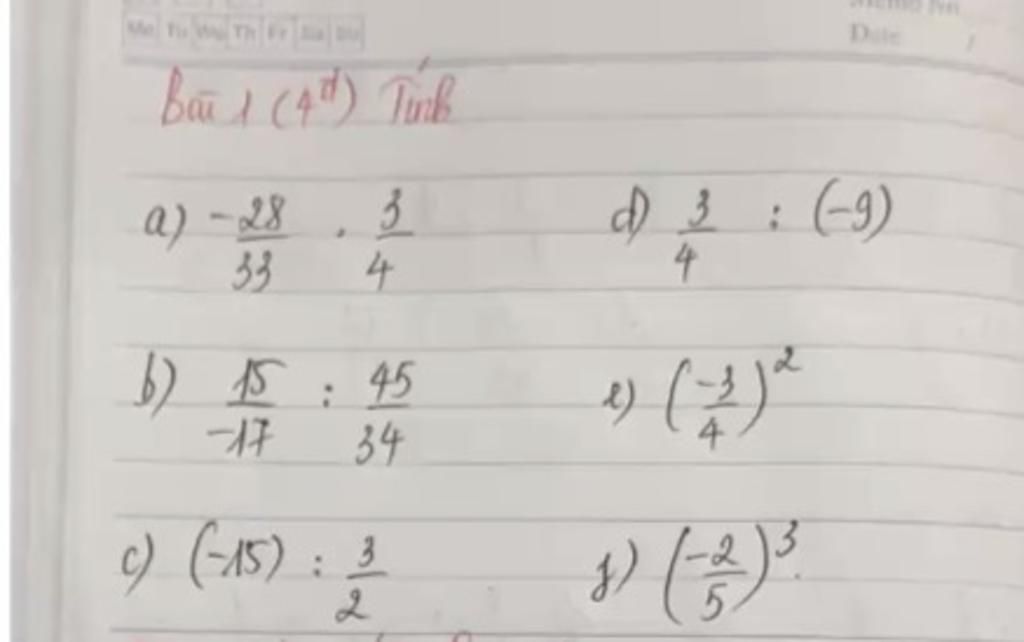 Mo Tu We Th Fr Sa Su
Memo No.
Date /
Bài 1 (4đ) Tính
a) -28/33 . 3/4
d) 3/4 : (-9)
b) 15/-17 : 45/34
e) (-3/4)²
c) (-15) : 3/2
f) (-2/5)³.